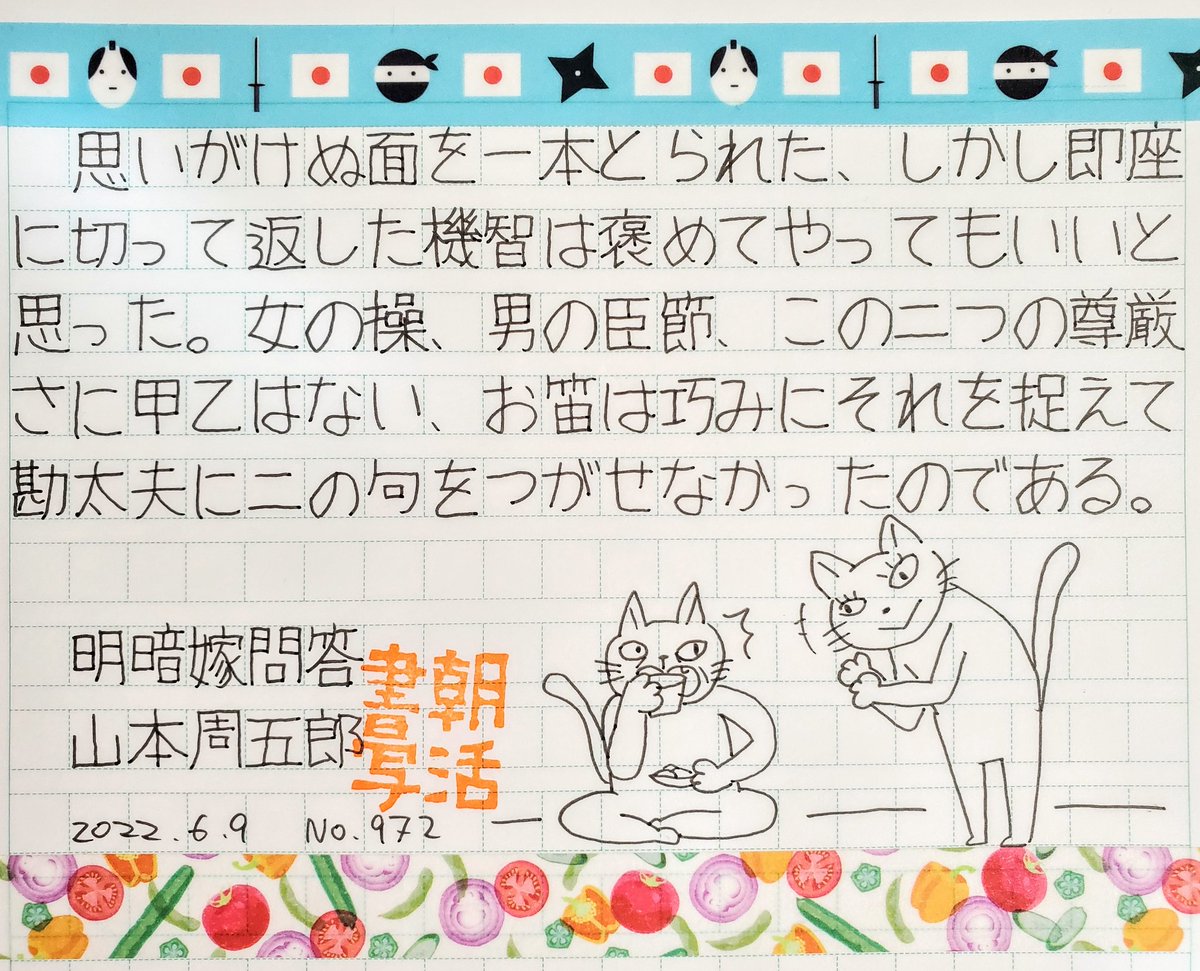 思いがけぬ面を一本とられた、しかし即座
に切って返した機智は褒めてやってもいいと
思った。女の操、男の臣節、この二つの尊厳
さに甲乙はない、お笛は巧みにそれを捉えて
勘太夫に二の句をつがせなかったのである。
明暗嫁問答
山本周五郎
朝活
書写
2022.6.9 No.972